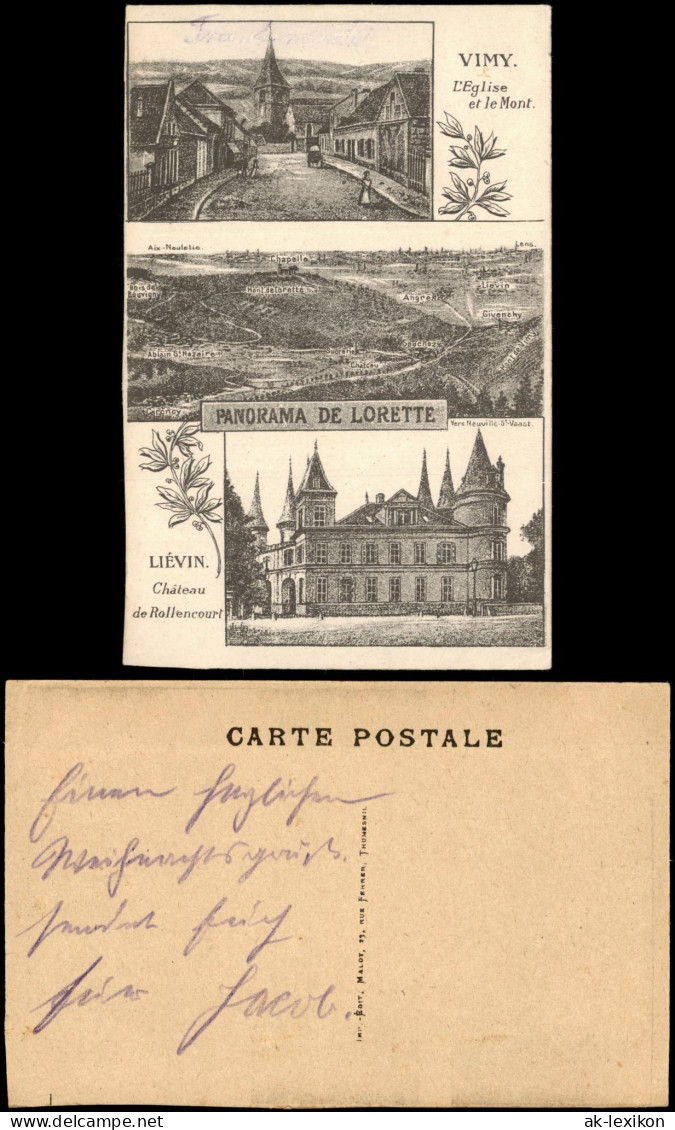 VIMY.
L'Eglise
et le Mont.
Aix-Noulette
Lens.
Chapelle
Liévin
Bois de
Bouvigny
Mont de Lorette
Angres
Givenchy
Souchez
Ablain St Nazaire
Sucrerie
Château
Carency
PANORAMA DE LORETTE
Vers Neuville-St-Vaast.
LIÉVIN.
Château
de Rollencourt
CARTE POSTALE
Einen herzlichen
Weihnachtsgruß
sendet Euch
Euer Jacob.
IMP.-EDIT. MALOT, 27, RUE FERRER, THUMESNIL
delcampe.net
ak-lexikon